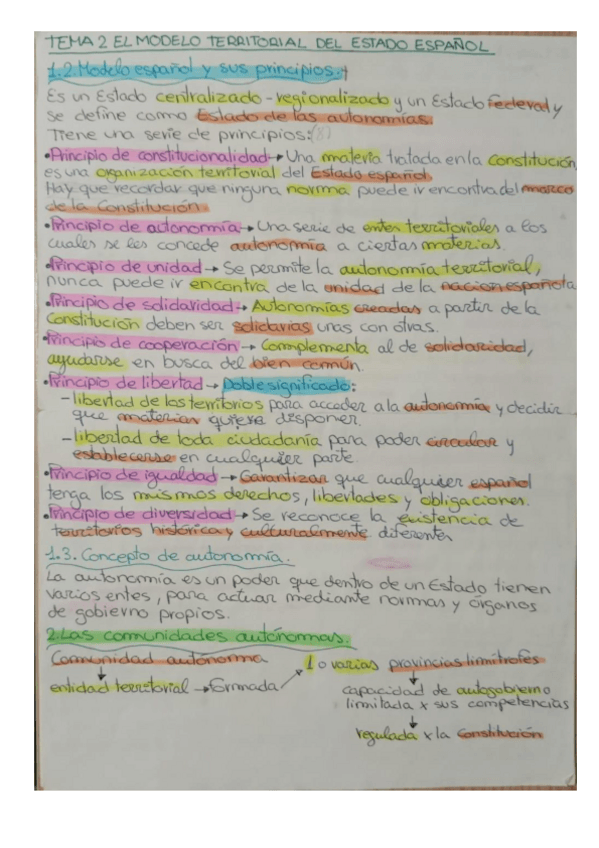 TEMA 2 EL MODELO TERRITORIAL DEL ESTADO ESPAÑOL
1.2. Modelo español y sus principios.
Es un Estado centralizado - regionalizado y un Estado Federal y
se define como Estado de las autonomías.
Tiene una serie de principios: (8)
• Principio de constitucionalidad → Una materia tratada en la Constitución,
es una organización territorial del Estado español.
Hay que recordar que ninguna norma puede ir encontra del marco
de la Constitución.
• Principio de autonomía → Una serie de entes territoriales a los
cuales se les concede autonomía a ciertas materias.
• Principio de unidad → Se permite la autonomía territorial,
nunca puede ir encontra de la unidad de la nación española
• Principio de solidaridad → Autonomías creadas a partir de la
Constitución deben ser solidarias unas con otras.
• Principio de cooperación → Complementa al de solidaridad,
ayudarse en busca del bien común.
• Principio de libertad → Doble significado:
– libertad de los territorios para acceder a la autonomía y decidir
que materias quiere disponer.
– libertad de toda ciudadanía para poder circular y
establecerse en cualquier parte.
• Principio de igualdad → Garantizar que cualquier español
tenga los mismos derechos, libertades y obligaciones.
• Principio de diversidad → Se reconoce la existencia de
territorios histórica y culturalmente diferentes
1.3. Concepto de autonomía.
La autonomía es un poder que dentro de un Estado tienen
varios entes, para actuar mediante normas y órganos
de gobierno propios.
2. Las comunidades autónomas.
Comunidad autónoma
1 o varias provincias limítrofes
entidad territorial → formada
capacidad de autogobierno
limitada x sus competencias
regulada x la Constitución